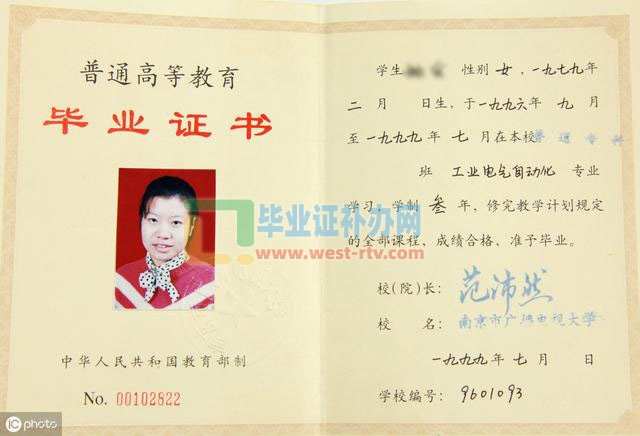 普通高等教育
毕业证书
毕业证补办网
www.west-rtv.com
中华人民共和国教育部制
No. 00102822
iC photo
学生 性别 女,一九七九年
二 月 日生,于一九九六年 九 月
至一九九九年 七 月在本校普通专科
班 工业电气自动化 专业
学习,学制 叁 年,修完教学计划规定
的全部课程,成绩合格,准予毕业。
校(院)长: 范沛然
校 名: 南京市广播电视大学
一九九九年 七 月 日
学校编号: 9601093